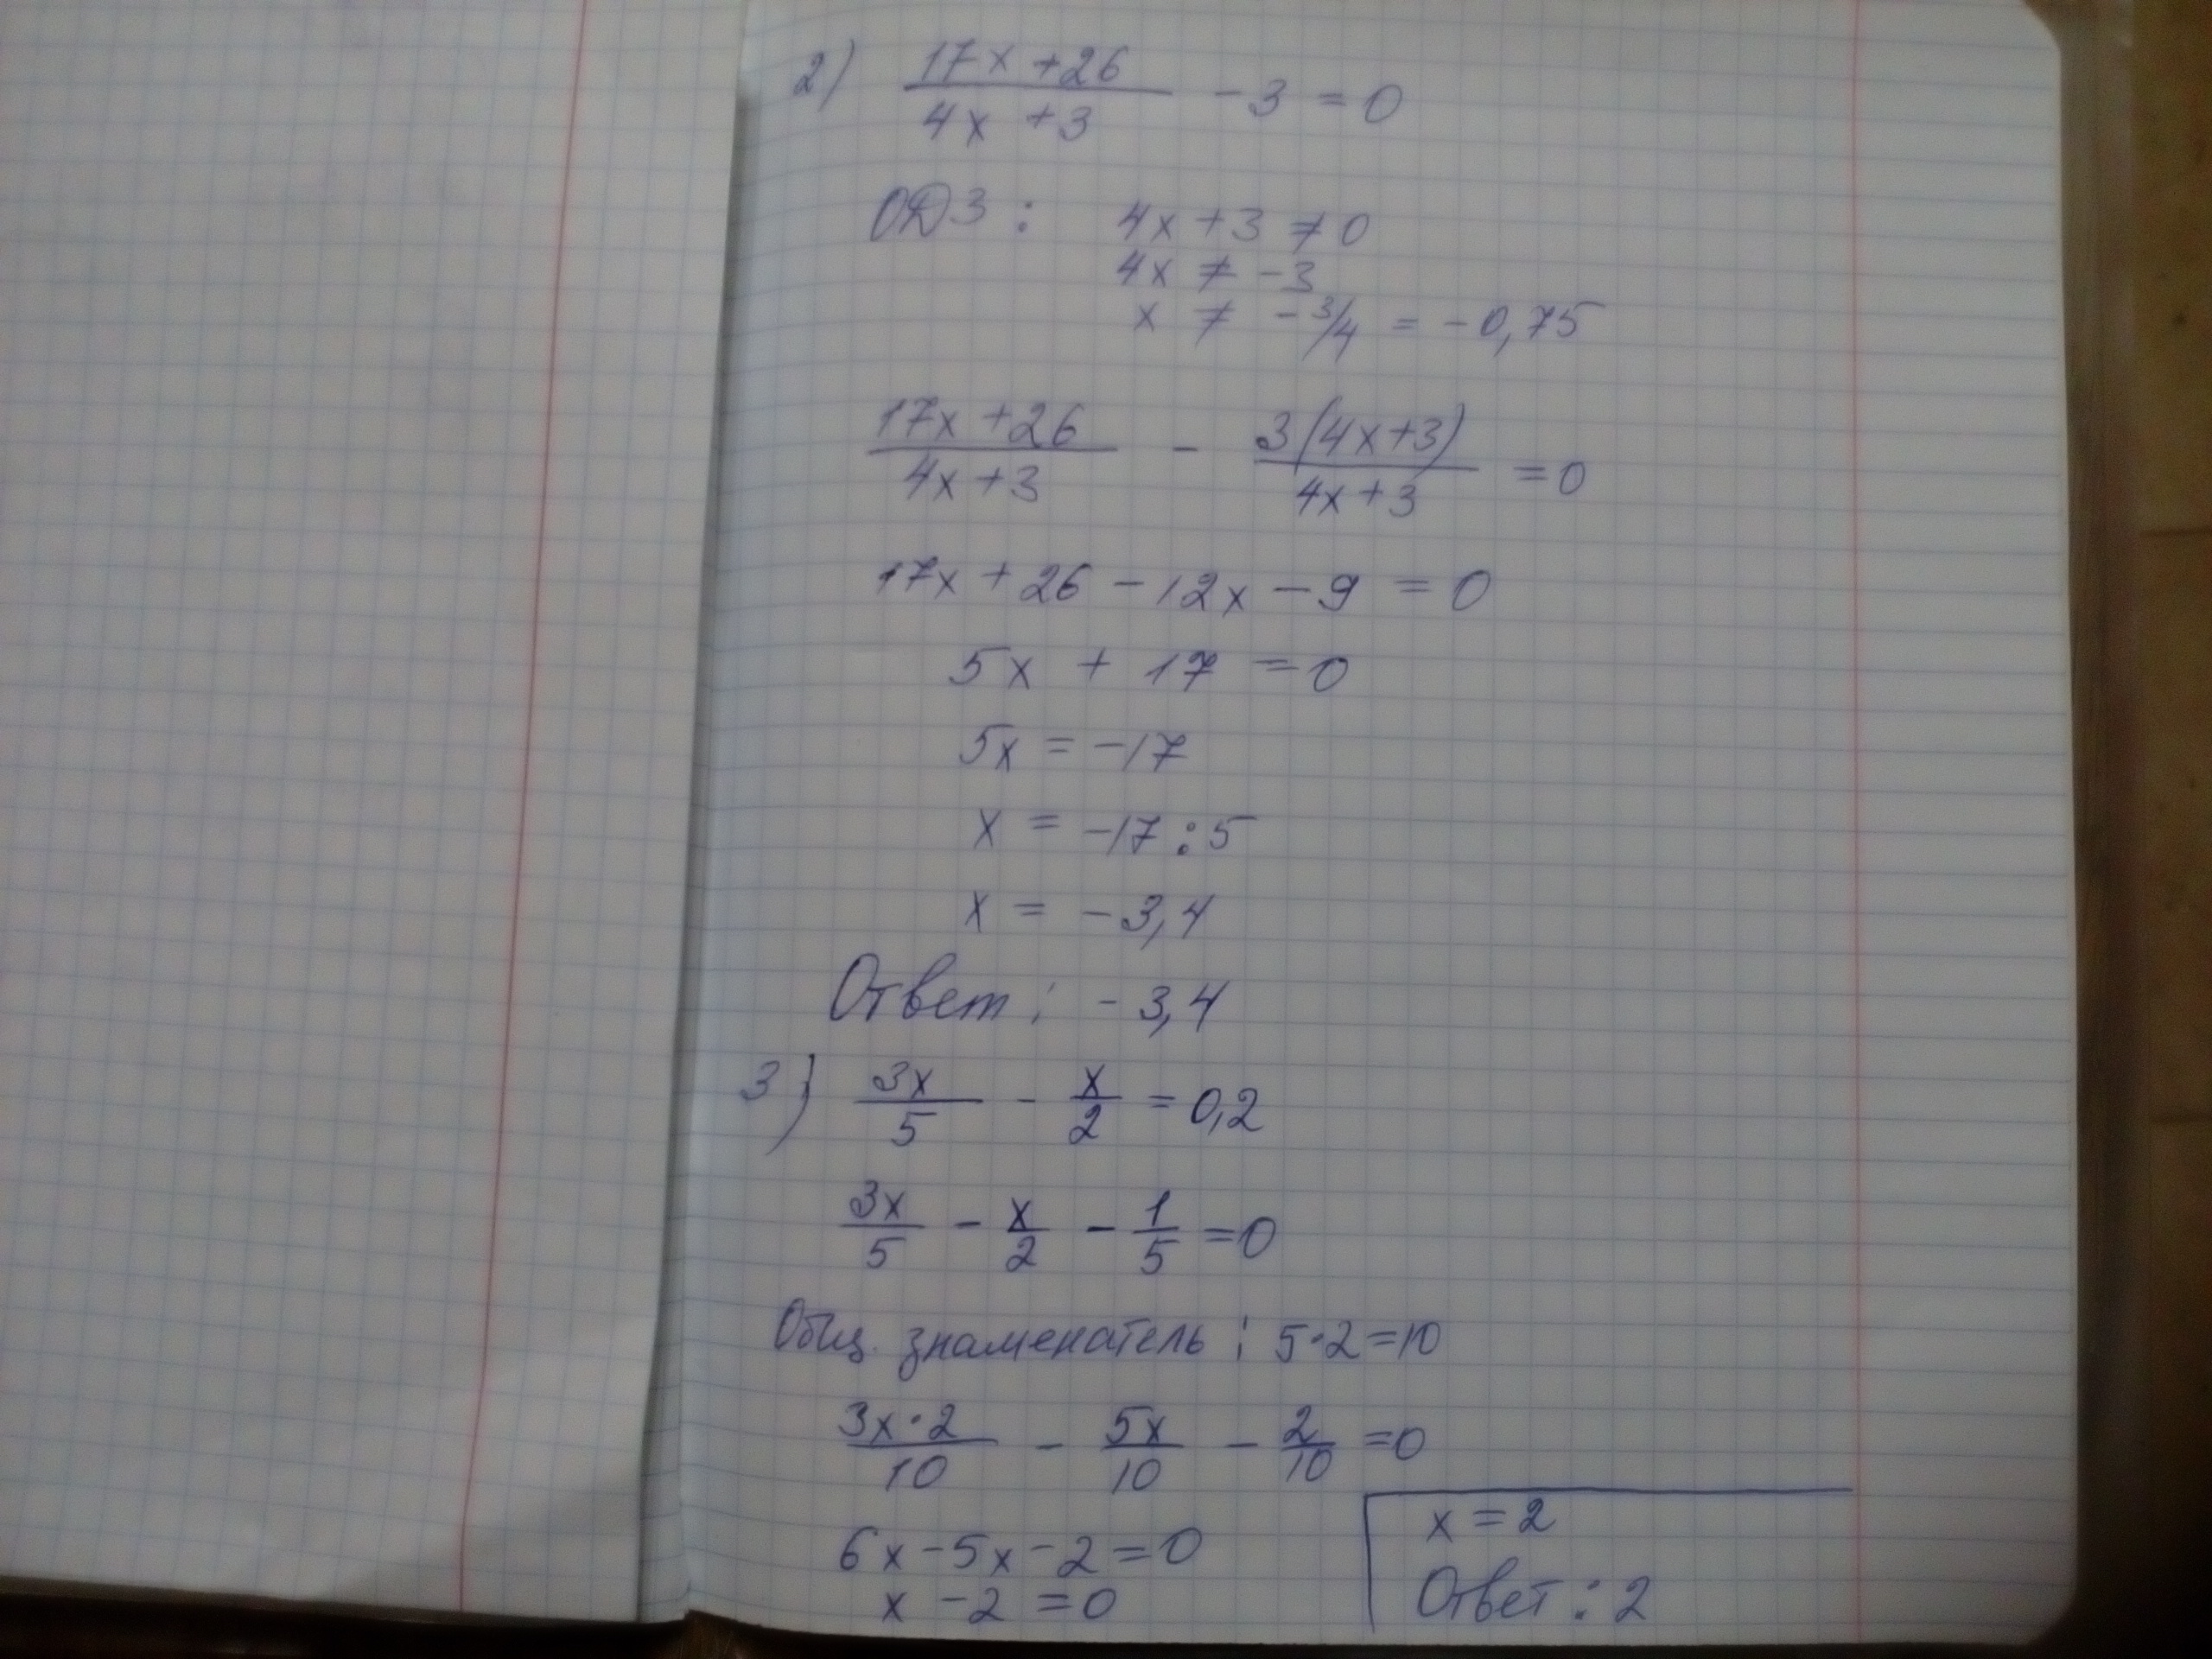 2) (17x + 26)/(4x + 3) - 3 = 0
ОДЗ : 4x + 3 ≠ 0
4x ≠ -3
x ≠ -3/4 = -0,75
(17x + 26)/(4x + 3) - 3(4x+3)/(4x + 3) = 0
17x + 26 - 12x - 9 = 0
5x + 17 = 0
5x = -17
x = -17 : 5
x = -3,4
Ответ : -3,4
3) 3x/5 - x/2 = 0,2
3x/5 - x/2 - 1/5 = 0
Общ. знаменатель : 5·2=10
3x·2/10 - 5x/10 - 2/10 = 0
6x - 5x - 2 = 0
x - 2 = 0
x = 2
Ответ : 2